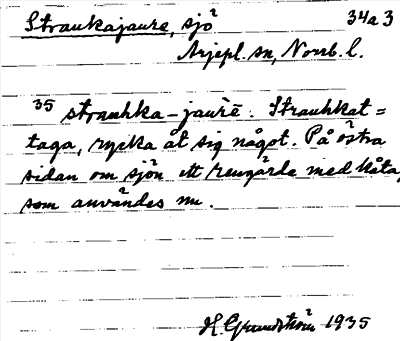 Straukajaure, sjö 34a3
Arjepl. sn, Norrb. l.
35 strauhka-jaure. Strauhkat =
taga, rycka åt sig något. På östra
sidan om sjön ett rengärde med kåta,
som användes nu.
H. Grundström 1935